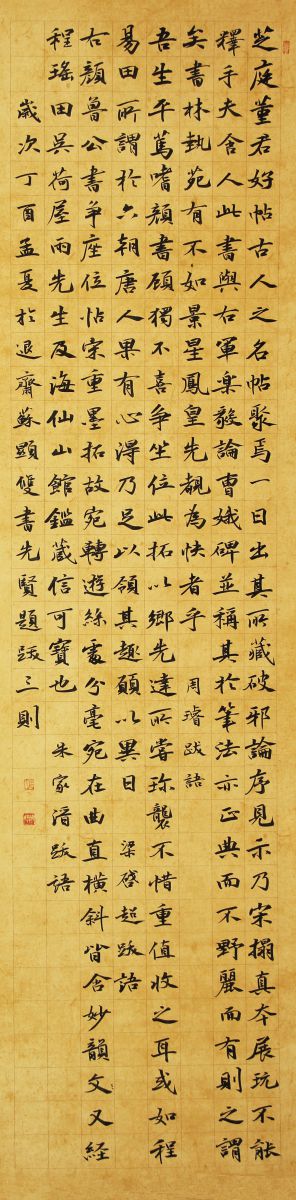 芝庭董君好帖古人之名帖聚焉一日出其所藏破邪論序見示乃宋搨真本展玩不能
釋手夫舍人此書與右軍樂毅論曹娥碑並稱其於筆法亦正典而不野麗而有則之謂
矣書林執苑有不如景星鳳皇先覩為快者乎 周璿跋語
吾生平篤嗜顏書顧獨不喜爭坐位此拓以鄉先達所嘗珎襲不惜重值收之耳或如程
易田所謂於六朝唐人果有心得乃足以領其趣願以異日 梁啓超跋語
右顏魯公書爭座位帖宋重墨拓故宛轉遊絲處分毫宛在曲直橫斜皆含妙韻文又経
程瑤田吳荷屋兩先生及海仙山館鑑蔵信可寶也 朱家濳跋語
歲次丁酉孟夏於退齋蘇顯雙書先賢題跋三則